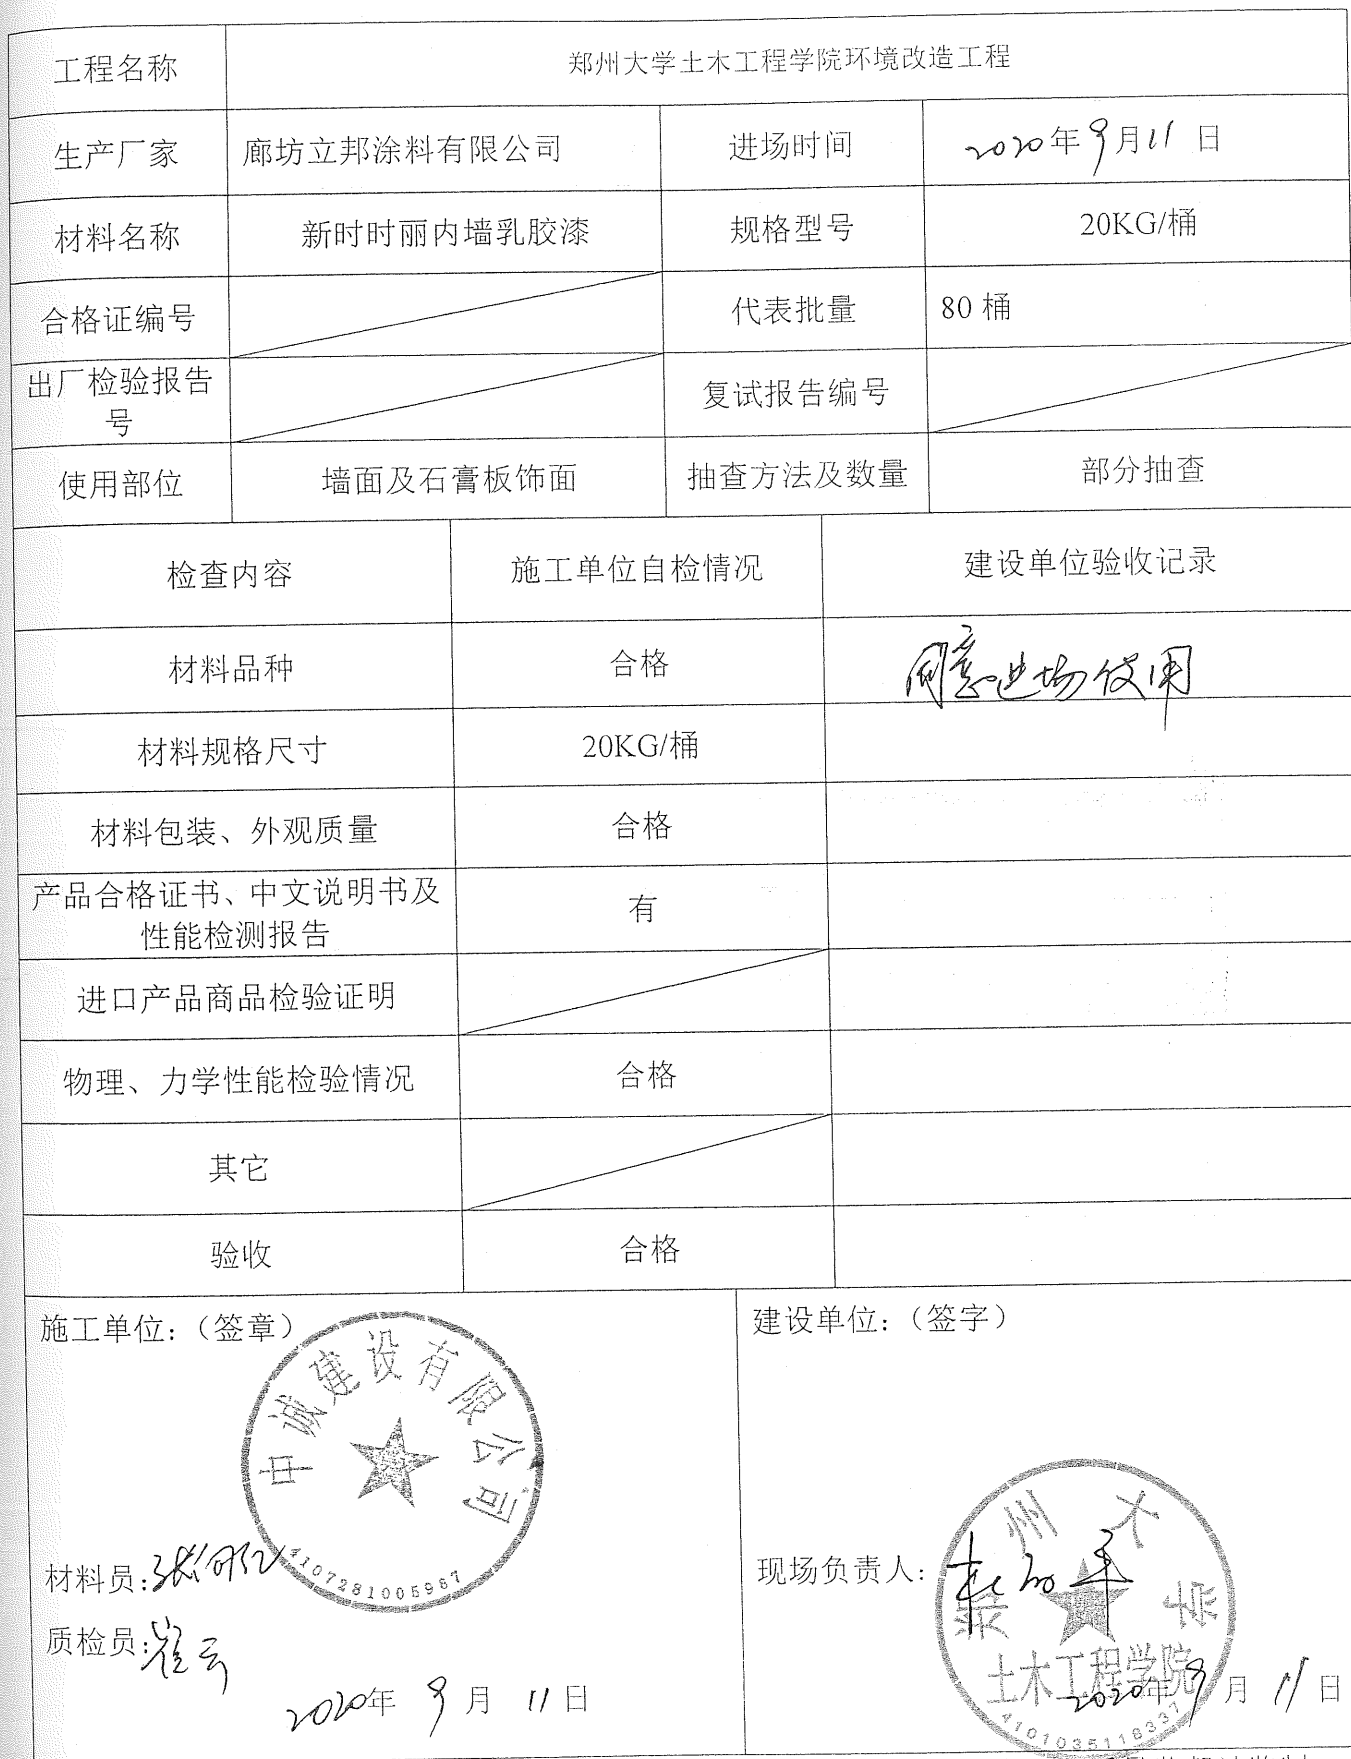 工程名称 郑州大学土木工程学院环境改造工程
生产厂家 廊坊立邦涂料有限公司 进场时间 2020年9月11日
材料名称 新时时丽内墙乳胶漆 规格型号 20KG/桶
合格证编号 代表批量 80 桶
出厂检验报告
号 复试报告编号
使用部位 墙面及石膏板饰面 抽查方法及数量 部分抽查
检查内容 施工单位自检情况 建设单位验收记录
材料品种 合格 同意进场使用
材料规格尺寸 20KG/桶
材料包装、外观质量 合格
产品合格证书、中文说明书及
性能检测报告 有
进口产品商品检验证明
物理、力学性能检验情况 合格
其它
验收 合格
施工单位:（签章） 建设单位:（签字）
中诚建设有限公司
4107281005967
材料员: 现场负责人:
郑州大学
质检员:崔云
土木工程学院
2020年9月11日 2020年9月11日
4101035118337